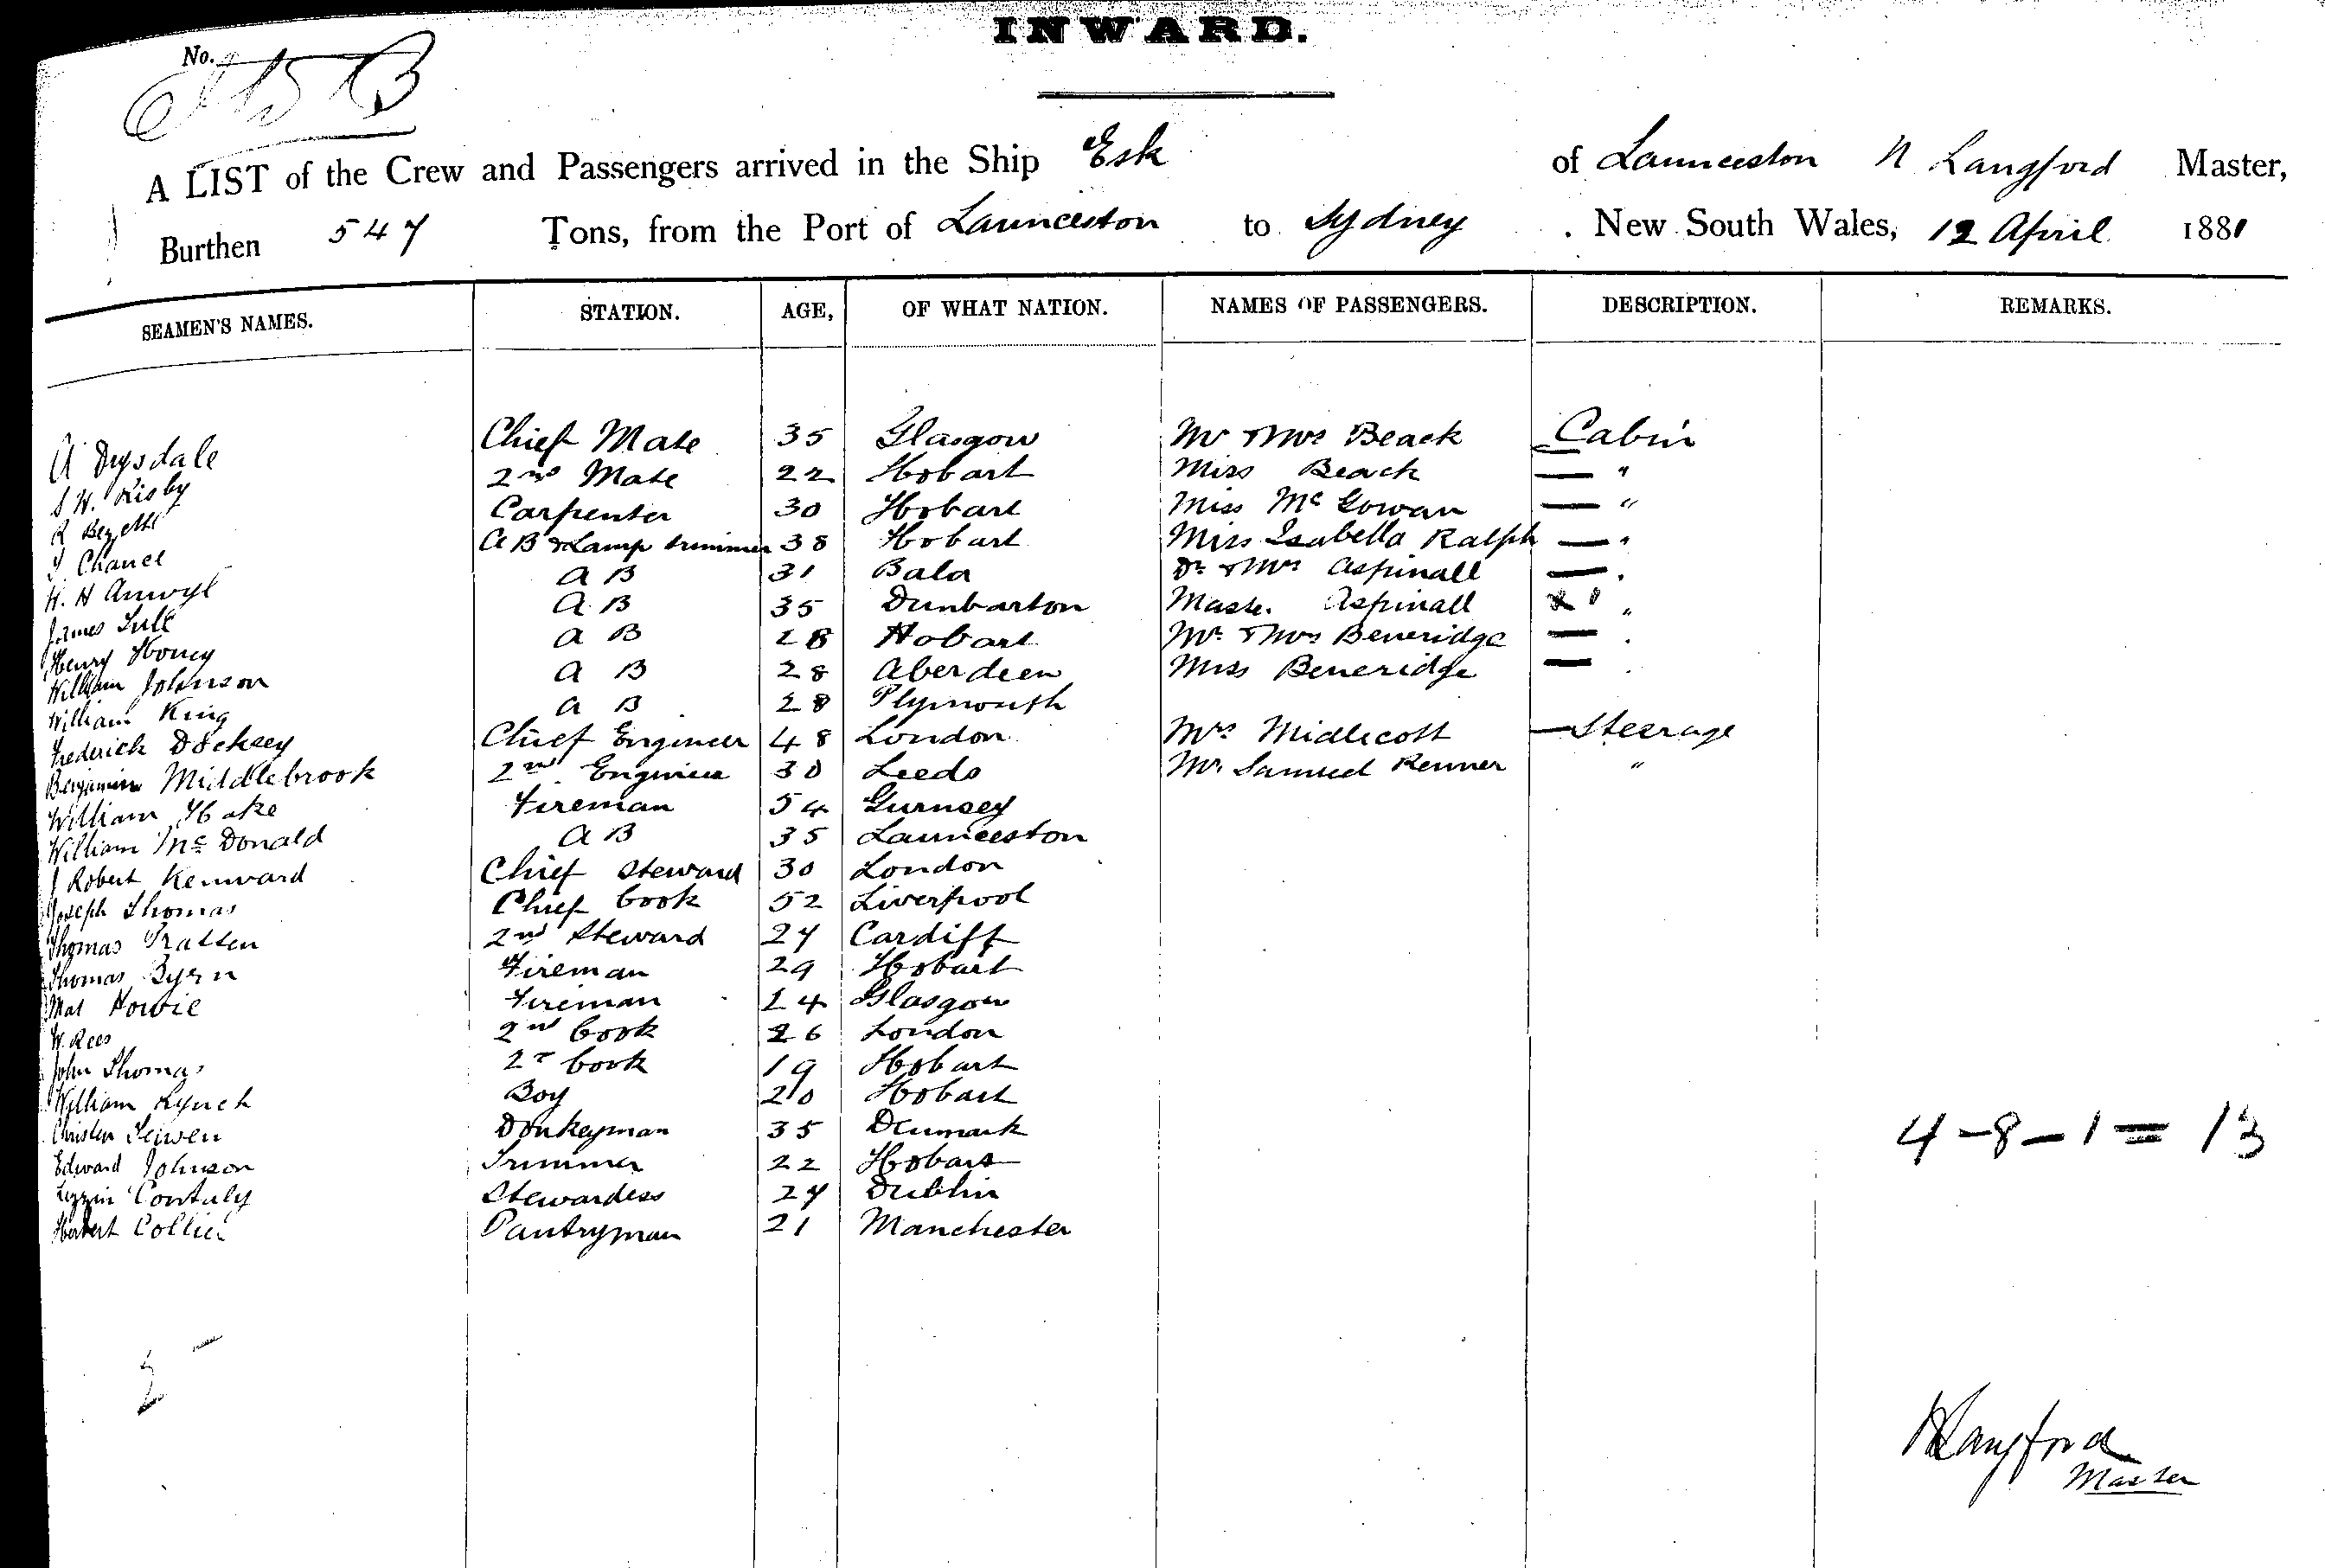 INWARD.
No.
A LIST of the Crew and Passengers arrived in the Ship Esk of Launceston N Langford Master,
Burthen 547 Tons, from the Port of Launceston to Sydney . New South Wales, 12 April 1881
SEAMEN'S NAMES. STATION. AGE, OF WHAT NATION. NAMES OF PASSENGERS. DESCRIPTION. REMARKS.
A Drysdale Chief Mate 35 Glasgow Mr & Mrs Beack Cabin
S W. Risby 2nd Mate 22 Hobart Miss Beack — "
R Bezette Carpenter 30 Hobart Miss McGowan — "
Chanel A B & Lamp trimmer 38 Hobart Miss Isabella Ralph — "
H. H Anwyl A B 31 Bala Dr & Mrs Aspinall — "
James A. B 35 Dunbarton Mastr. Aspinall "
Henry Honey A B 28 Hobart Mr & Mrs Beveridge — "
William Johnson A B 28 Aberdeen Miss Beveridge — "
William King A B 28 Plymouth
Frederick Docksey Chief Engineer 48 London Mrs Midlecott — Steerage
Benjamin Middlebrook 2nd Engineer 30 Leeds Mr Samuel Renner "
William Hake Fireman 54 Gurnsey
William McDonald A B 35 Launceston
J Robert Kenward Chief Steward 30 London
Joseph Thomas Chief Cook 52 Liverpool
Thomas Pratten 2nd Steward 27 Cardiff
Thomas Byrn Fireman 29 Hobart
Mat Howie Fireman 24 Glasgow
W. Rees 2nd Cook 26 London
John Thomas 2d Cook 19 Hobart
William Lynch Boy 20 Hobart
Christen Donkeyman 35 Denmark
Edward Johnson Trimmer 22 Hobart
Lizzie Stewardess 27 Dublin
Herbert Collier Pantryman 21 Manchester
4 – 8 – 1 = 13
N Langford
Master